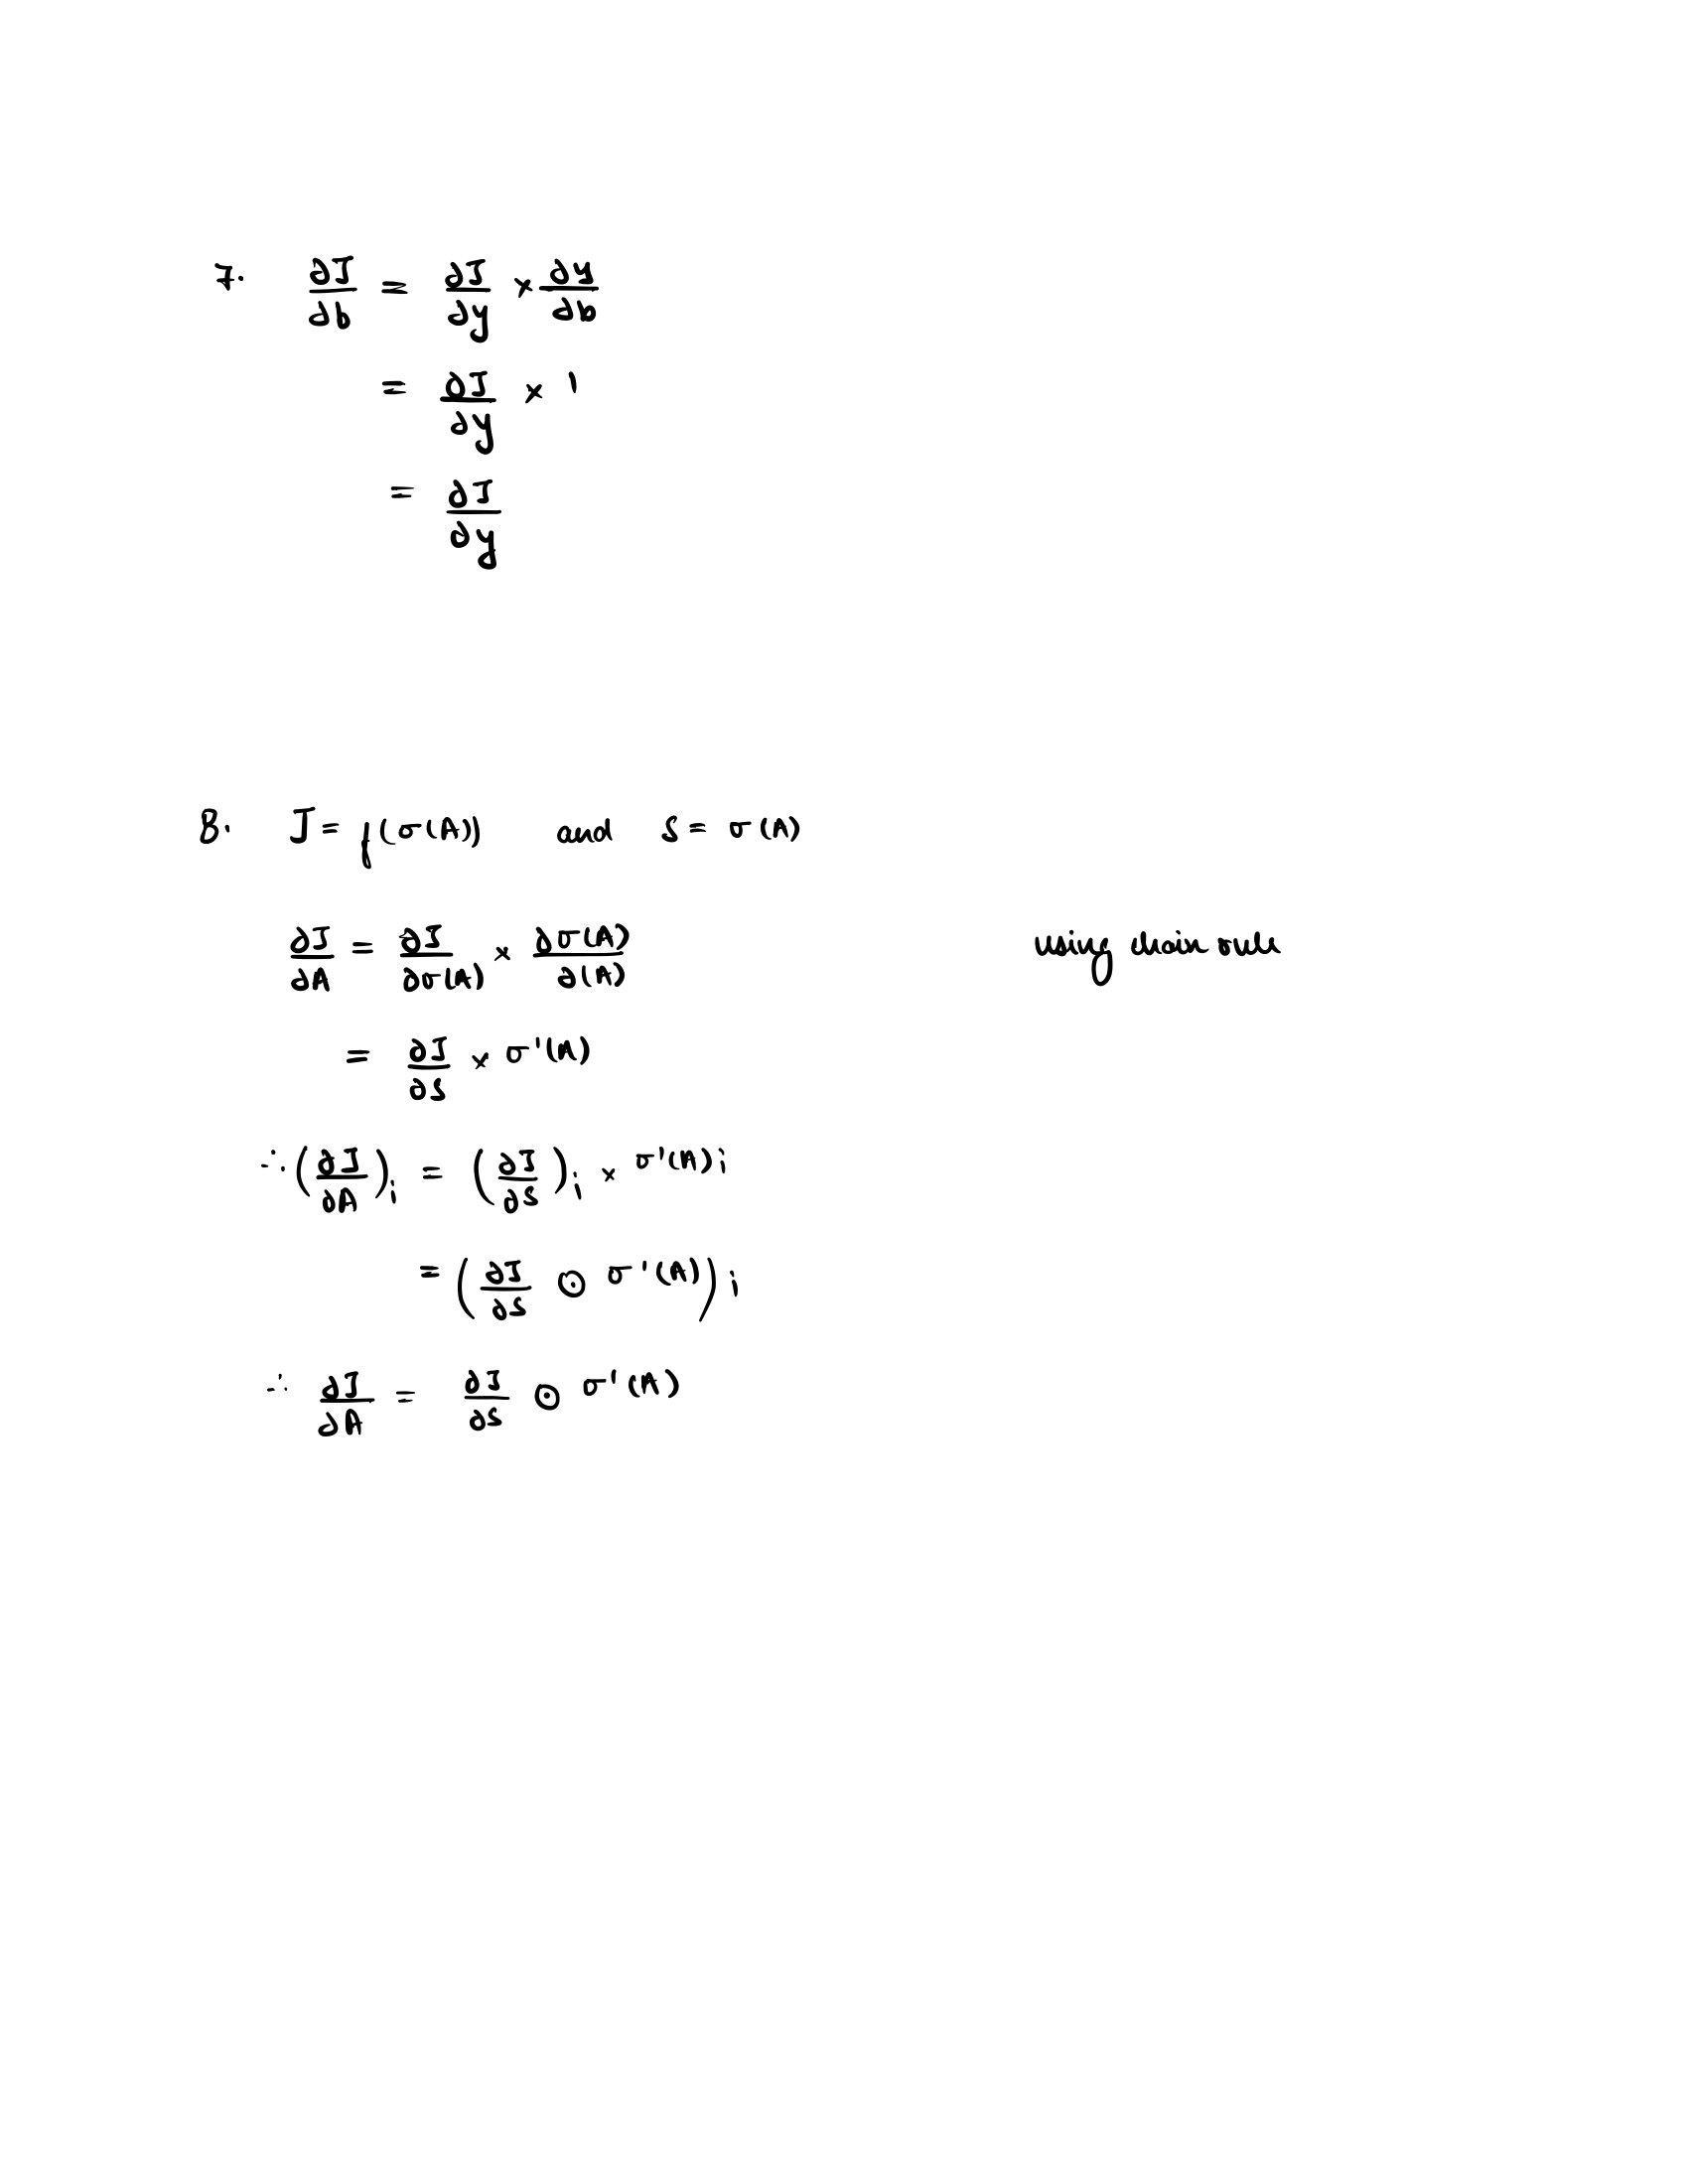 7. ∂J/∂b = ∂J/∂y × ∂y/∂b
= ∂J/∂y × 1
= ∂J/∂y
8. J = f(σ(A)) and S = σ(A)
∂J/∂A = ∂J/∂σ(A) × ∂σ(A)/∂(A) using chain rule
= ∂J/∂S × σ'(A)
∴ (∂J/∂A)i = (∂J/∂S)i × σ'(A)i
= (∂J/∂S ⊙ σ'(A))i
∴ ∂J/∂A = ∂J/∂S ⊙ σ'(A)